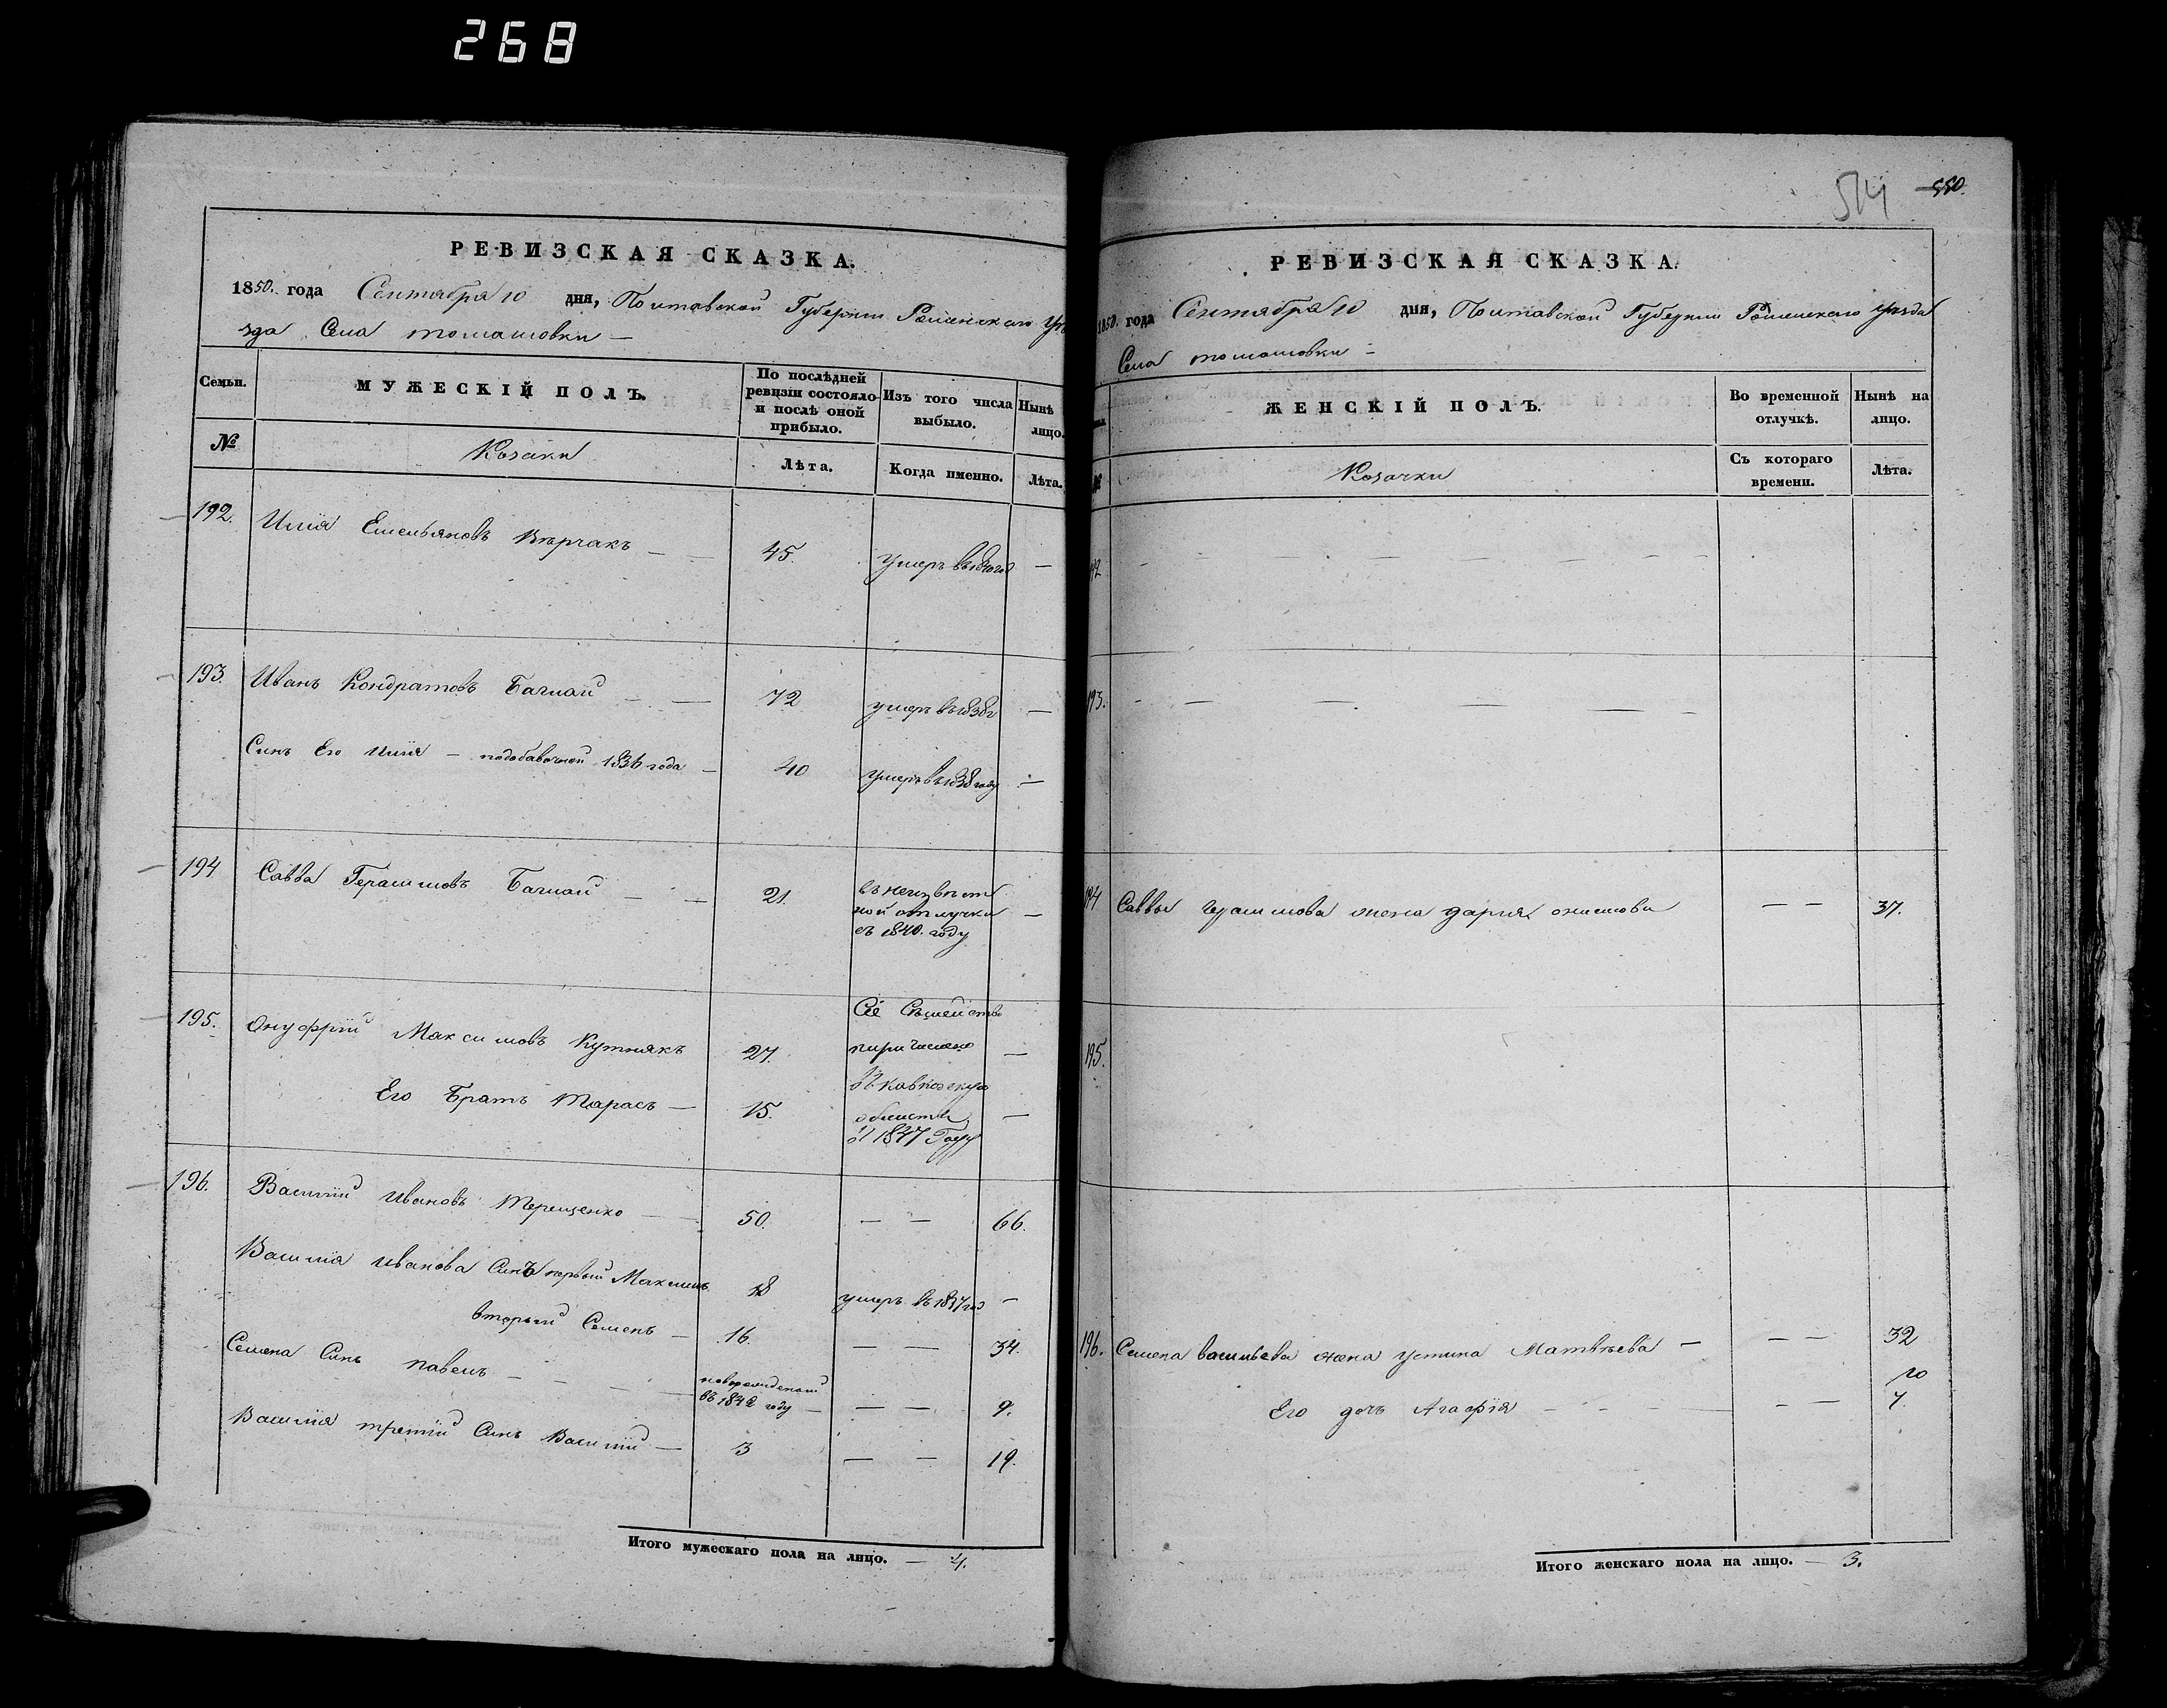 268
РЕВИЗСКАЯ СКАЗКА.
1850. года Сентября 10 дня, Полтавской Губернии Роменскаго Уѣ
зда Села томашовки —
Семьи. МУЖЕСКІЙ ПОЛЪ. По послѣдней ревизіи состояло и послѣ оной прибыло. Изъ того числа выбыло. Нынѣ лицо.
№ Козаки Лѣта. Когда именно. Лѣта.
192. Илия Емельяновъ 45. умеръ —
193. Иванъ Кондратовъ Баглай — — 72 умеръ въ 1838 г —
Синъ Его Илия — 1836 года — 40 умеръ въ 1838 году —
194 Савва Герасимовъ Баглай — — 21. въ неизвѣст
ной отлучки —
съ 1840. году
195. Онуфрий Максимовъ Кутнякъ 27. Сіе Сѣмейство
—
Его Братъ Тарасъ — 15. въ Кавказскую
области —
1847 Году
196. Василий Ивановъ Терещенко — — 50. — — 66.
Василия Иванова Синъ первый Максимъ 18 умеръ въ —
вторый Семенъ — 16. — — 34.
Семена Синъ Павелъ — — — — новорожденый
въ 1842 году — — — 9.
Василия третий Синъ Василий — 3 — — 19.
Итого мужескаго пола на лицо. — 4.
514 550.
РЕВИЗСКАЯ СКАЗКА.
1850. года Сентября 10 дня, Полтавской Губернии Роменскаго уѣзда
Села томашовки —
ЖЕНСКІЙ ПОЛЪ. Во временной отлучкѣ. Нынѣ на лицо.
№ Козачки Съ котораго времени. Лѣта.
192
193.
194 Саввы Герасимова жена дария — — 37.
195.
196. Семена васильева жена устина Матвѣева — — — 32
Его дочь Агафія — — — — — 7
Итого женскаго пола на лицо. — 3.